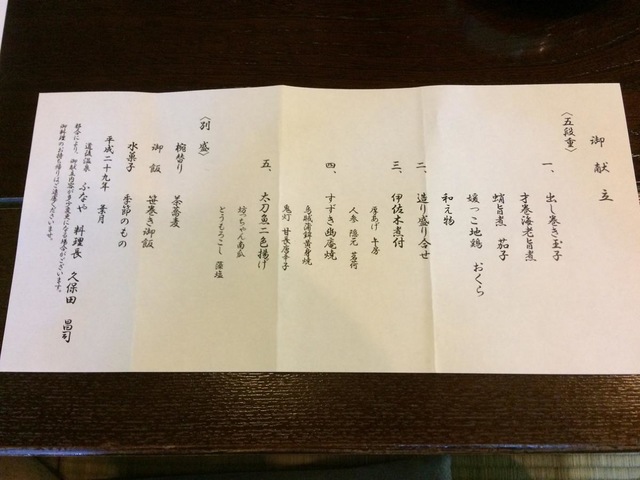 御献立
〈五段重〉
一、出し巻き玉子
才巻海老旨煮
蛸旨煮 茄子
媛っこ地鶏 おくら
和え物
二、造り盛り合せ
三、伊佐木煮付
厚あげ 牛房
人参 隠元 茗荷
四、すずき幽庵焼
烏賊蒲鉾黄身焼
鬼灯 甘長唐辛子
五、太刀魚二色揚げ
坊っちゃん南瓜
とうもろこし 藻塩
〈別盛〉
椀替り 茶蕎麦
御飯 笹巻き御飯
水菓子 季節のもの
平成二十九年 葉月
道後温泉 ふなや 料理長 久保田 昌司
都合により、御献立内容が多少変更になる場合がございます。
御料理のお持ち帰りはご遠慮くださいませ。